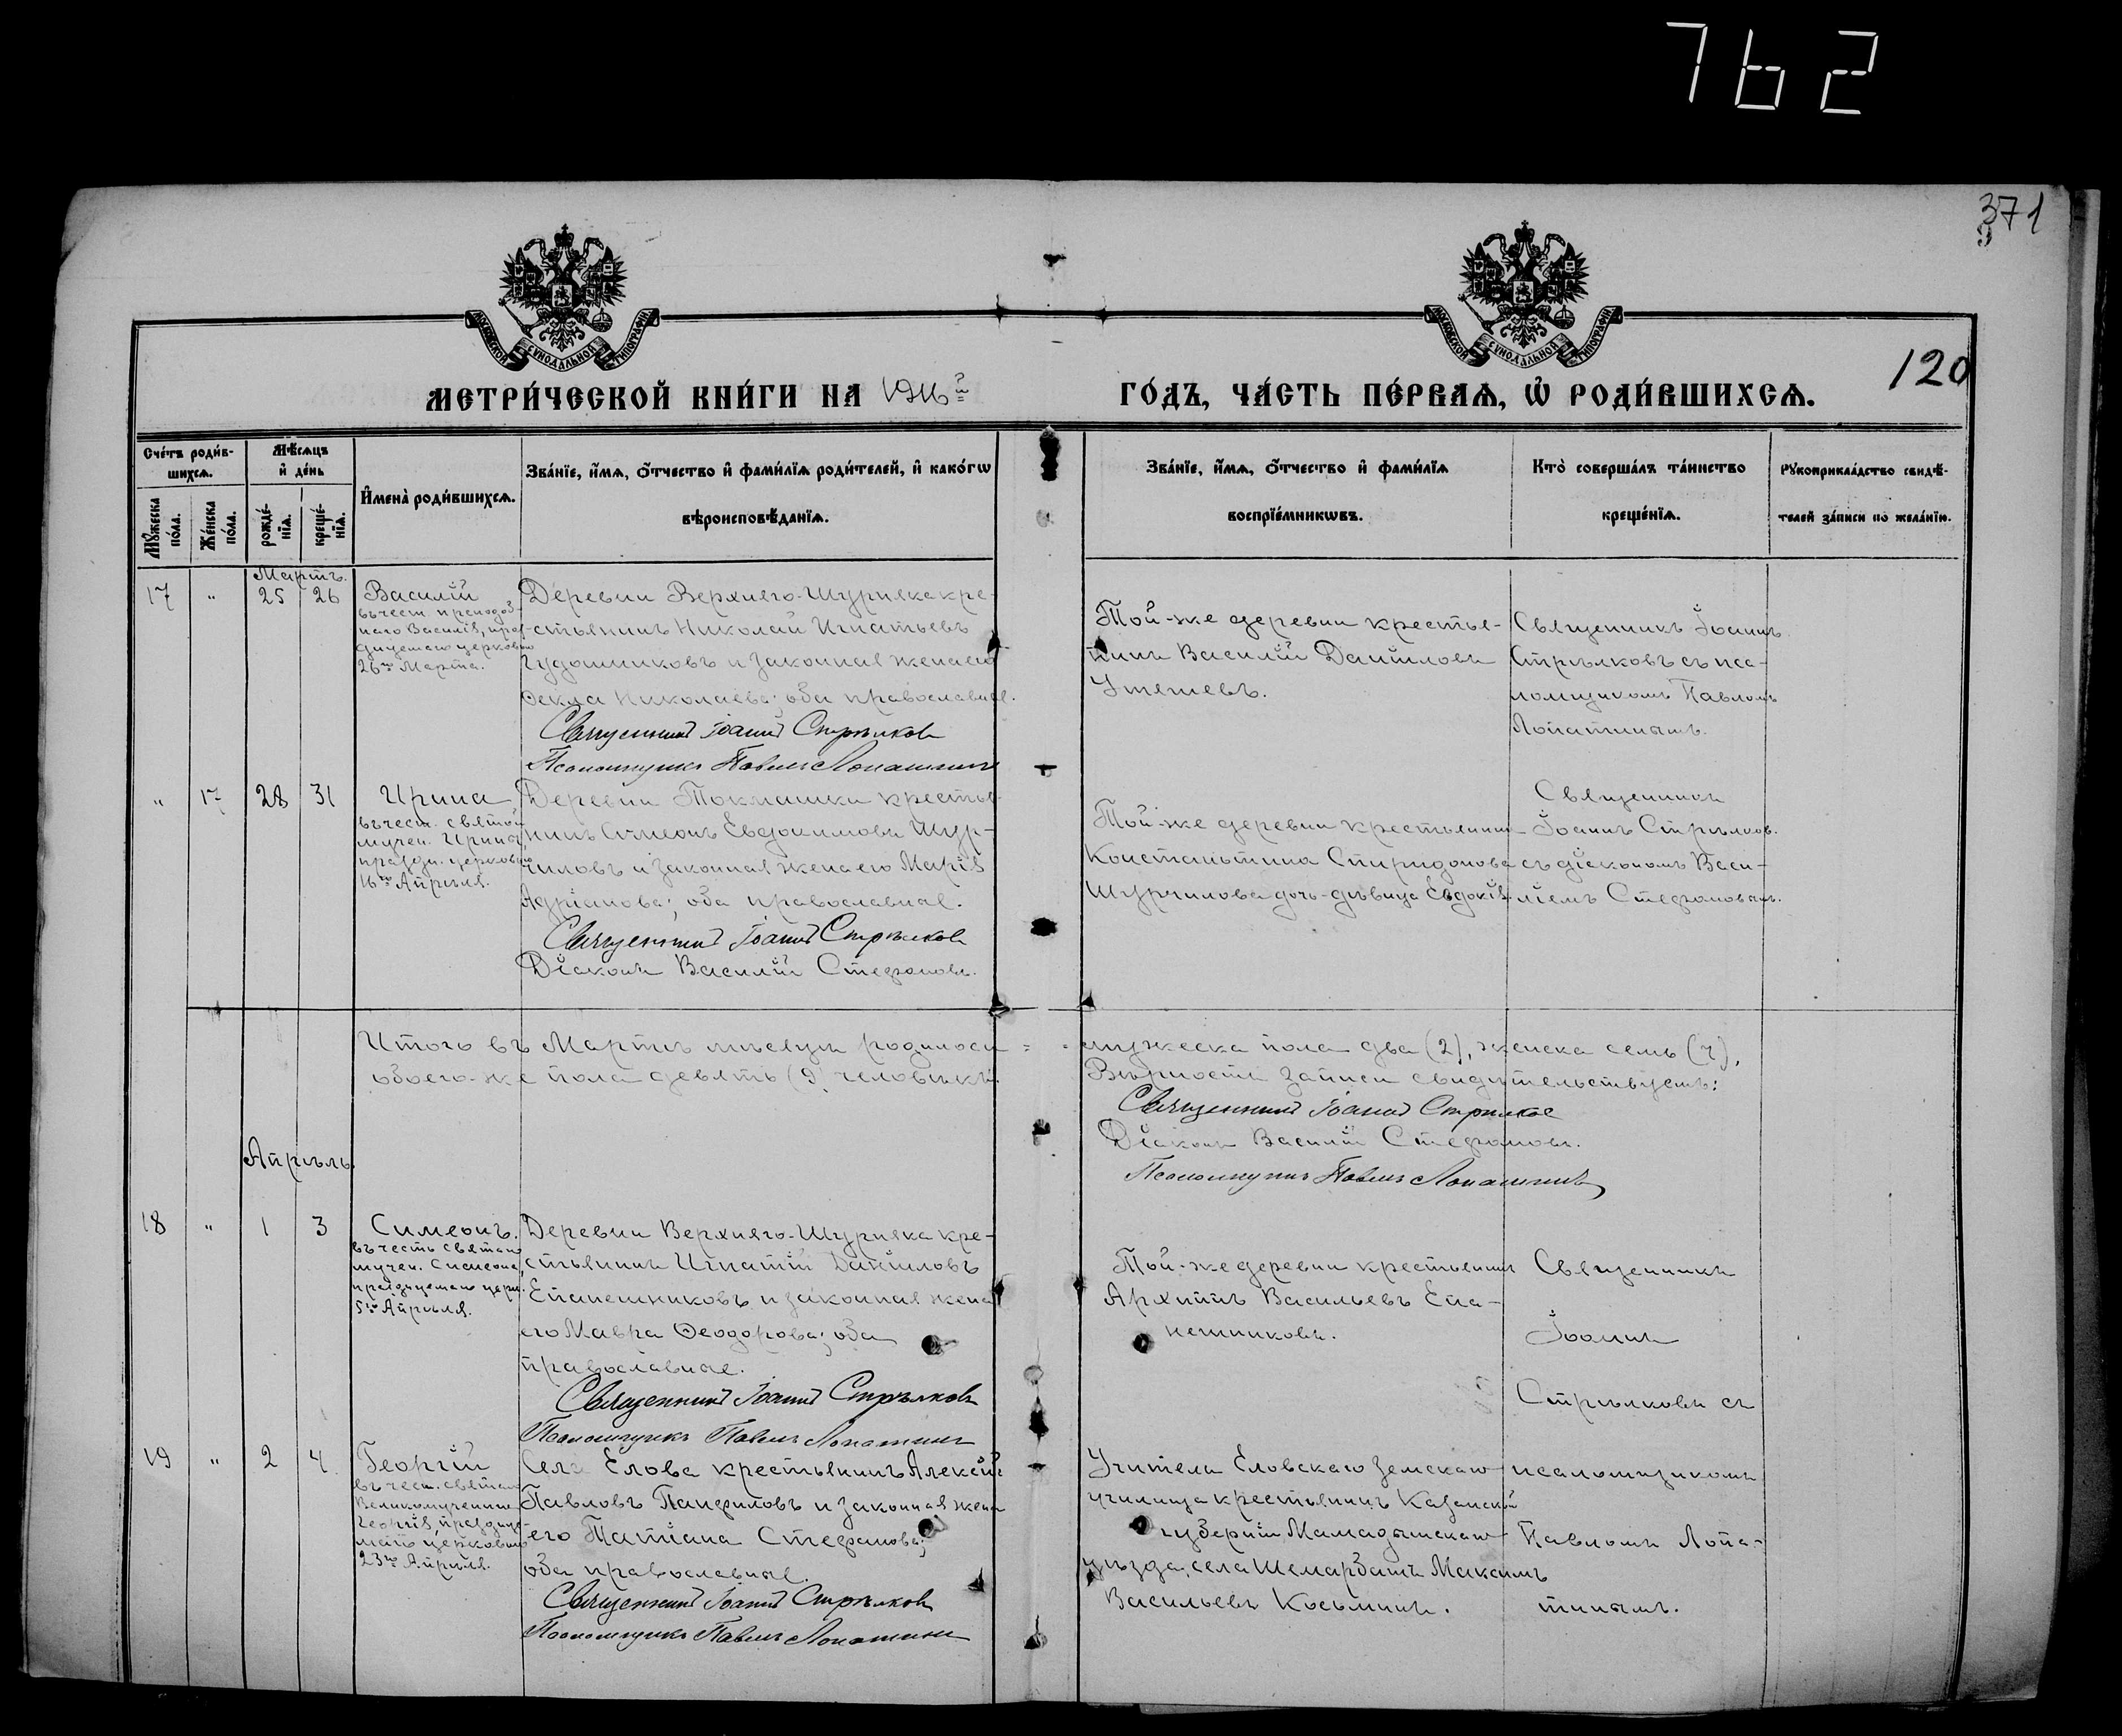 762
371
120
МОСКОВСКОЙ СѴНОДАЛЬНОЙ ТИПОГРАФІИ
МОСКОВСКОЙ СѴНОДАЛЬНОЙ ТИПОГРАФІИ
МЕТРИ́ЧЕСКОЙ КНИ́ГИ НА 1916й
ГО́ДЪ, ЧА́СТЬ ПЕ́РВАѦ, Ѽ РОДИ́ВШИХСѦ.
Сче́тъ роди́в-
шихсѧ.
Мꙋ́жеска по́ла.
Же́нска по́ла.
Мѣ́сѧцъ
и҆ де́нь
рожде́-нїѧ.
креще́-нїѧ.
И҆мена̀ роди́вшихсѧ.
Зва́нїе, и҆́мѧ, о҆́тчество и҆ фами́лїѧ роди́телей, и҆ како́гѡ
вѣроисповѣ́данїѧ.
Зва́нїе, и҆́мѧ, о҆́тчество и҆ фами́лїѧ
воспрїе́мникѡвъ.
Кто̀ соверша́лъ та́инство
креще́нїѧ.
Рꙋкоприкла́дство свидѣ́-
телей за́писи по жела́нїю.
Мартъ.
17 " 25 26
Василій
въ чест. преподоб-
наго Василія, празд-
днуемаго церковью
26го Марта.
Деревни Верхняго-Шуршяка кре-
стьянинъ Николай Игнатьевъ
Чудошниковъ и законная жена его
Ѳекла Николаева; оба православные.
Священникъ Іоаннъ Стрѣлковъ
Псаломщикъ Павелъ Лопатинъ
Той-же деревни крестья-
нинъ Василій Даниловъ
Утяшевъ.
Священникъ Іоаннъ
Стрѣлковъ съ пса-
ломщикомъ Павломъ
Лопатинымъ.
" 17 28 31
Ирина,
въ чест. святой
мучен. Ирины,
праздн. церковью
16го Апрѣля.
Деревни Токмашки крестья-
нинъ Симеонъ Евдокимовъ Шур-
чиловъ и законная жена его Марія
Адріанова; оба православные.
Священникъ Іоаннъ Стрѣлковъ
Діаконъ Василій Стефановъ.
Той-же деревни крестьянина
Константина Спиридонова
Шурчилова дочь-дѣвица Евдокія
Священникъ
Іоаннъ Стрѣлковъ.
съ діакономъ Васи-
ліемъ Стефановымъ.
Итого въ Мартѣ мѣсяцѣ родилось = = мужеска пола два (2), женска семь (7),
обоего-же пола девять (9) человѣкъ.
Вѣрность записи свидѣтельствуемъ:
Священникъ Іоаннъ Стрѣлковъ
Діаконъ Василій Стефановъ.
Псаломщикъ Павелъ Лопатинъ
Апрѣль
18 " 1 3
Симеонъ.
въ честь святаго
мучен. Симеона,
празднуемаго церк.
5го Апрѣля.
Деревни Верхняго-Шуршяка кре-
стьянинъ Игнатій Даніиловъ
Епанешниковъ и законная жена
его Мавра Ѳеодорова; оба
православные.
Священникъ Іоаннъ Стрѣлковъ
Псаломщикъ Павелъ Лопатинъ
Той-же деревни крестьянинъ
Архиппъ Васильевъ Епа-
нешниковъ.
Священникъ
Іоаннъ
Стрѣлковъ съ
19 " 2 4
Георгій
въ чест. святаго
Великомученика
Георгія, праздну-
маго церковью
23го Апрѣля.
Села Елова крестьянинъ Алексій
Павловъ Панфиловъ и законная жена
его Татіана Стефанова;
оба православные.
Священникъ Іоаннъ Стрѣлковъ
Псаломщикъ Павелъ Лопатинъ
Учитель Еловскаго земскаго
училища крестьянинъ Казанской
губерніи Мамадышскаго
уѣзда, села Шемарбашъ Максимъ
Васильевъ Косьминъ.
псаломщикомъ
Павломъ Лопа-
тинымъ.